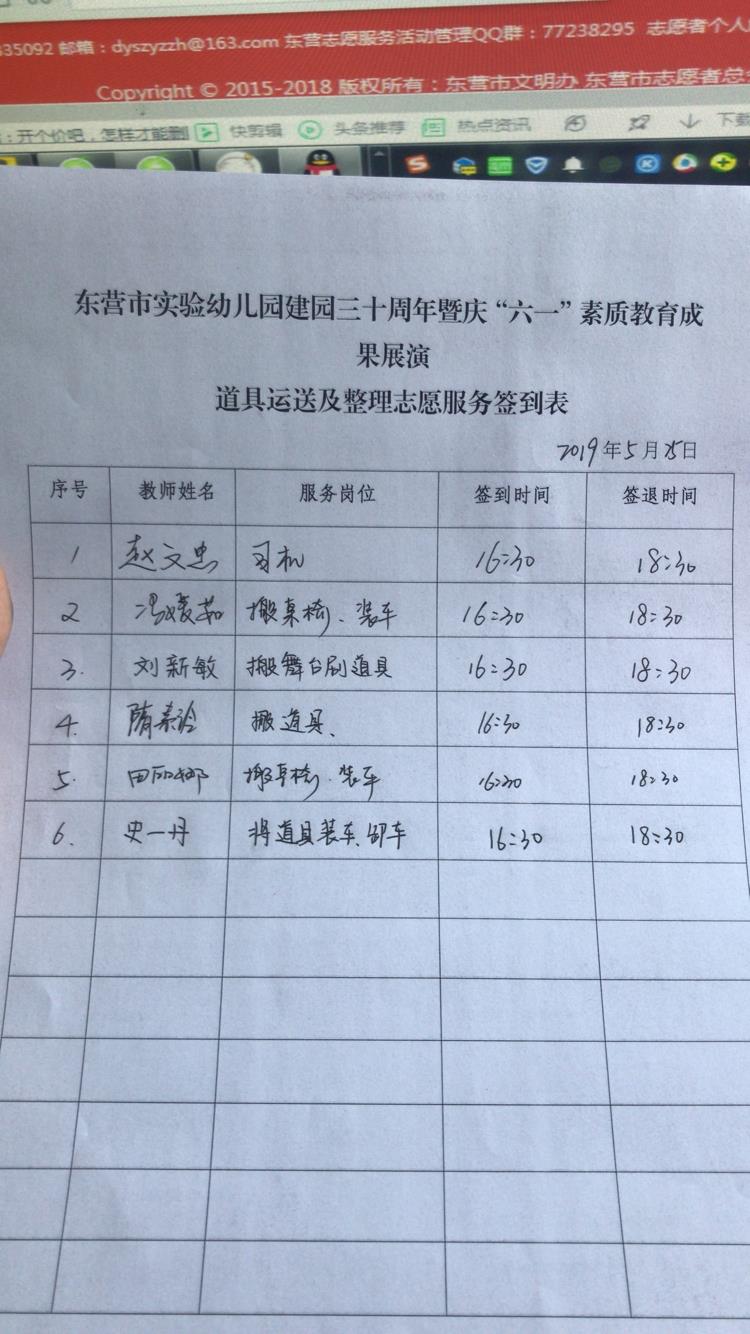 335092 邮箱：dyszyzzh@163.com 东营志愿服务活动管理QQ群：77238295 志愿者个人
Copyright © 2015-2018 版权所有：东营市文明办 东营市志愿者总
：开个价吧，怎样才能删 快剪辑 头条推荐 热点资讯 下载
东营市实验幼儿园建园三十周年暨庆“六一”素质教育成
果展演
道具运送及整理志愿服务签到表
2019年5月25日
序号 教师姓名 服务岗位 签到时间 签退时间
1 赵文忠 司机 16:30 18:30
2 冯媛茹 搬桌椅、装车 16:30 18:30
3. 刘新敏 搬舞台剧道具 16:30 18:30
4. 隋 搬道具、 16:30 18:30
5. 田丽娜 搬桌椅、装车 16:30 18:30
6. 史一丹 将道具装车、卸车 16:30 18:30